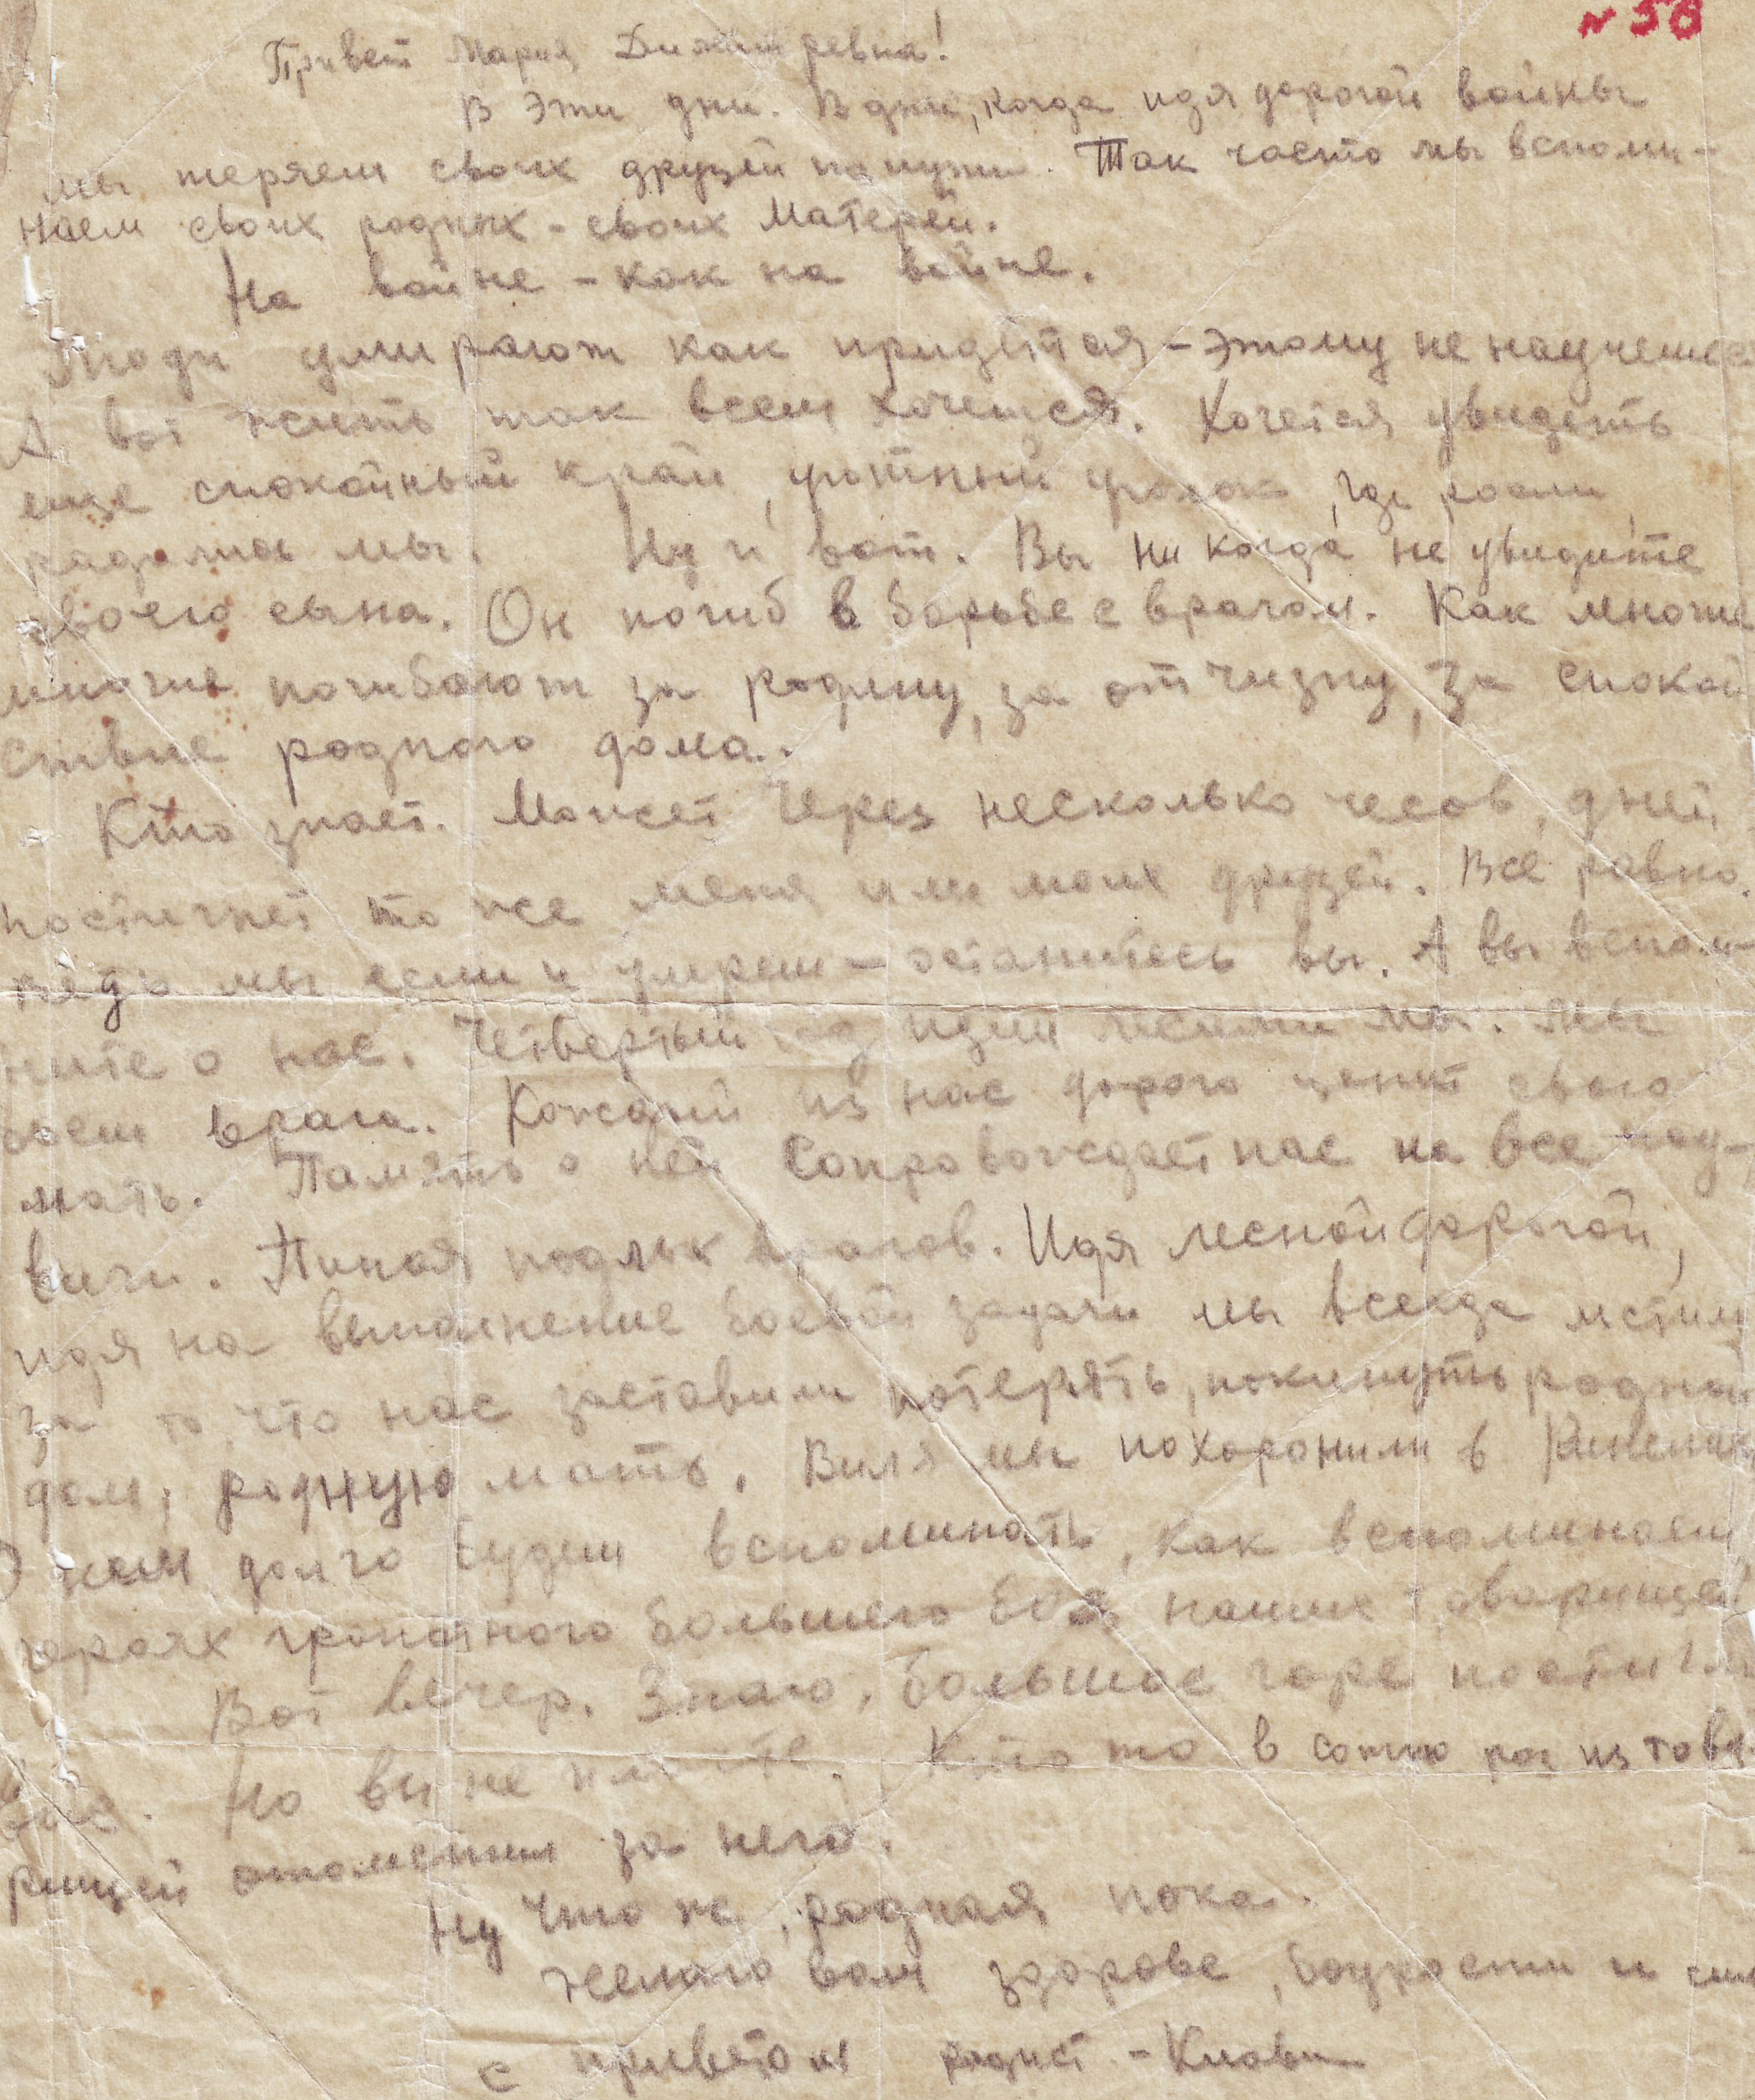 № 56
Привет Мария Дмитревна!
В эти дни. В дни, когда идя дорогой войны
мы теряем своих друзей по пути. Так часто мы вспоми-
наем своих родных - своих Матерей.
На войне - как на войне.
Люди умирают как придётся - этому не научишься
А вот жить так всем хочется. Хочется увидеть
еще спокойный край, уютный уголок, где росли,
радались мы. Ну и вот. Вы ни когда не увидите
своего сына. Он погиб в борьбе с врагом. Как многие
многие погибают за родину, за отчизну, за спокой
ствие родного дома.
Кто знает. Может через несколько чесов, дней
постигнет то же меня или моих друзей. Все равно.
ведь мы если и умрем - останитесь вы. А вы вспом-
ните о нас. Четвертый мы. Мы
бьем врага. Каждый из нас дорого ценит свою
мать. Память о ней сопровождает нас на все
подлых врагов. Идя лесной дорогой,
идя на выполнение боевой задачи мы всегда мстим
за то, что нас заставили потерять, покинуть родной
дом, родную мать. Виля мы похоронили в
О нем долго будем вспоминать, как вспоминаем
героях большего боя, наших товарищей
Вот вечер. Знаю, большое горе постигло
вас. Но вы не плачте. Кто то в сотню раз из това-
рищей отомстим за него.
Ну что же, родная пока.
желаю вам здорове, бодрости и
с приветом радист -